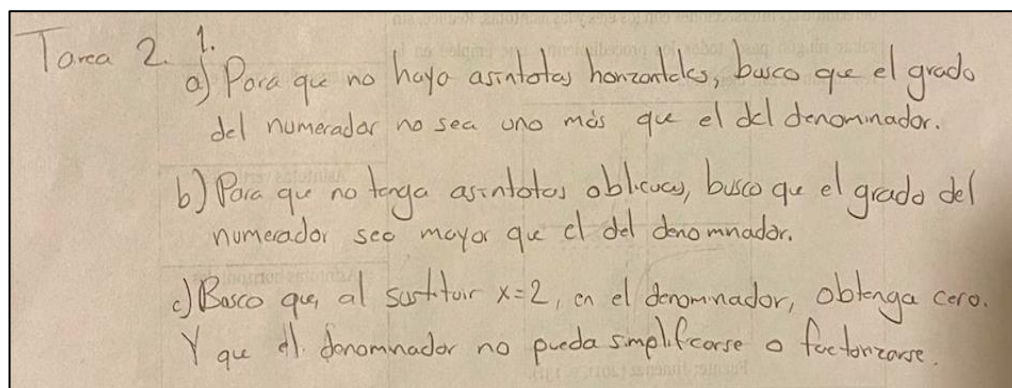 Tarea 2. 1.
a) Para que no haya asíntotas horizontales, busco que el grado
del numerador no sea uno más que el del denominador.
b) Para que no tenga asíntotas oblicuas, busco que el grado del
numerador sea mayor que el del denomnador.
c) Busco que, al sustituir x=2, en el denominador, obtenga cero.
Y que el denomnador no pueda simplificarse o factorizarse.